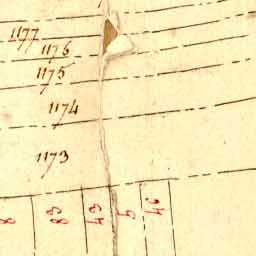 1177
1176
1175
1174
1173
8 83 43 5 46